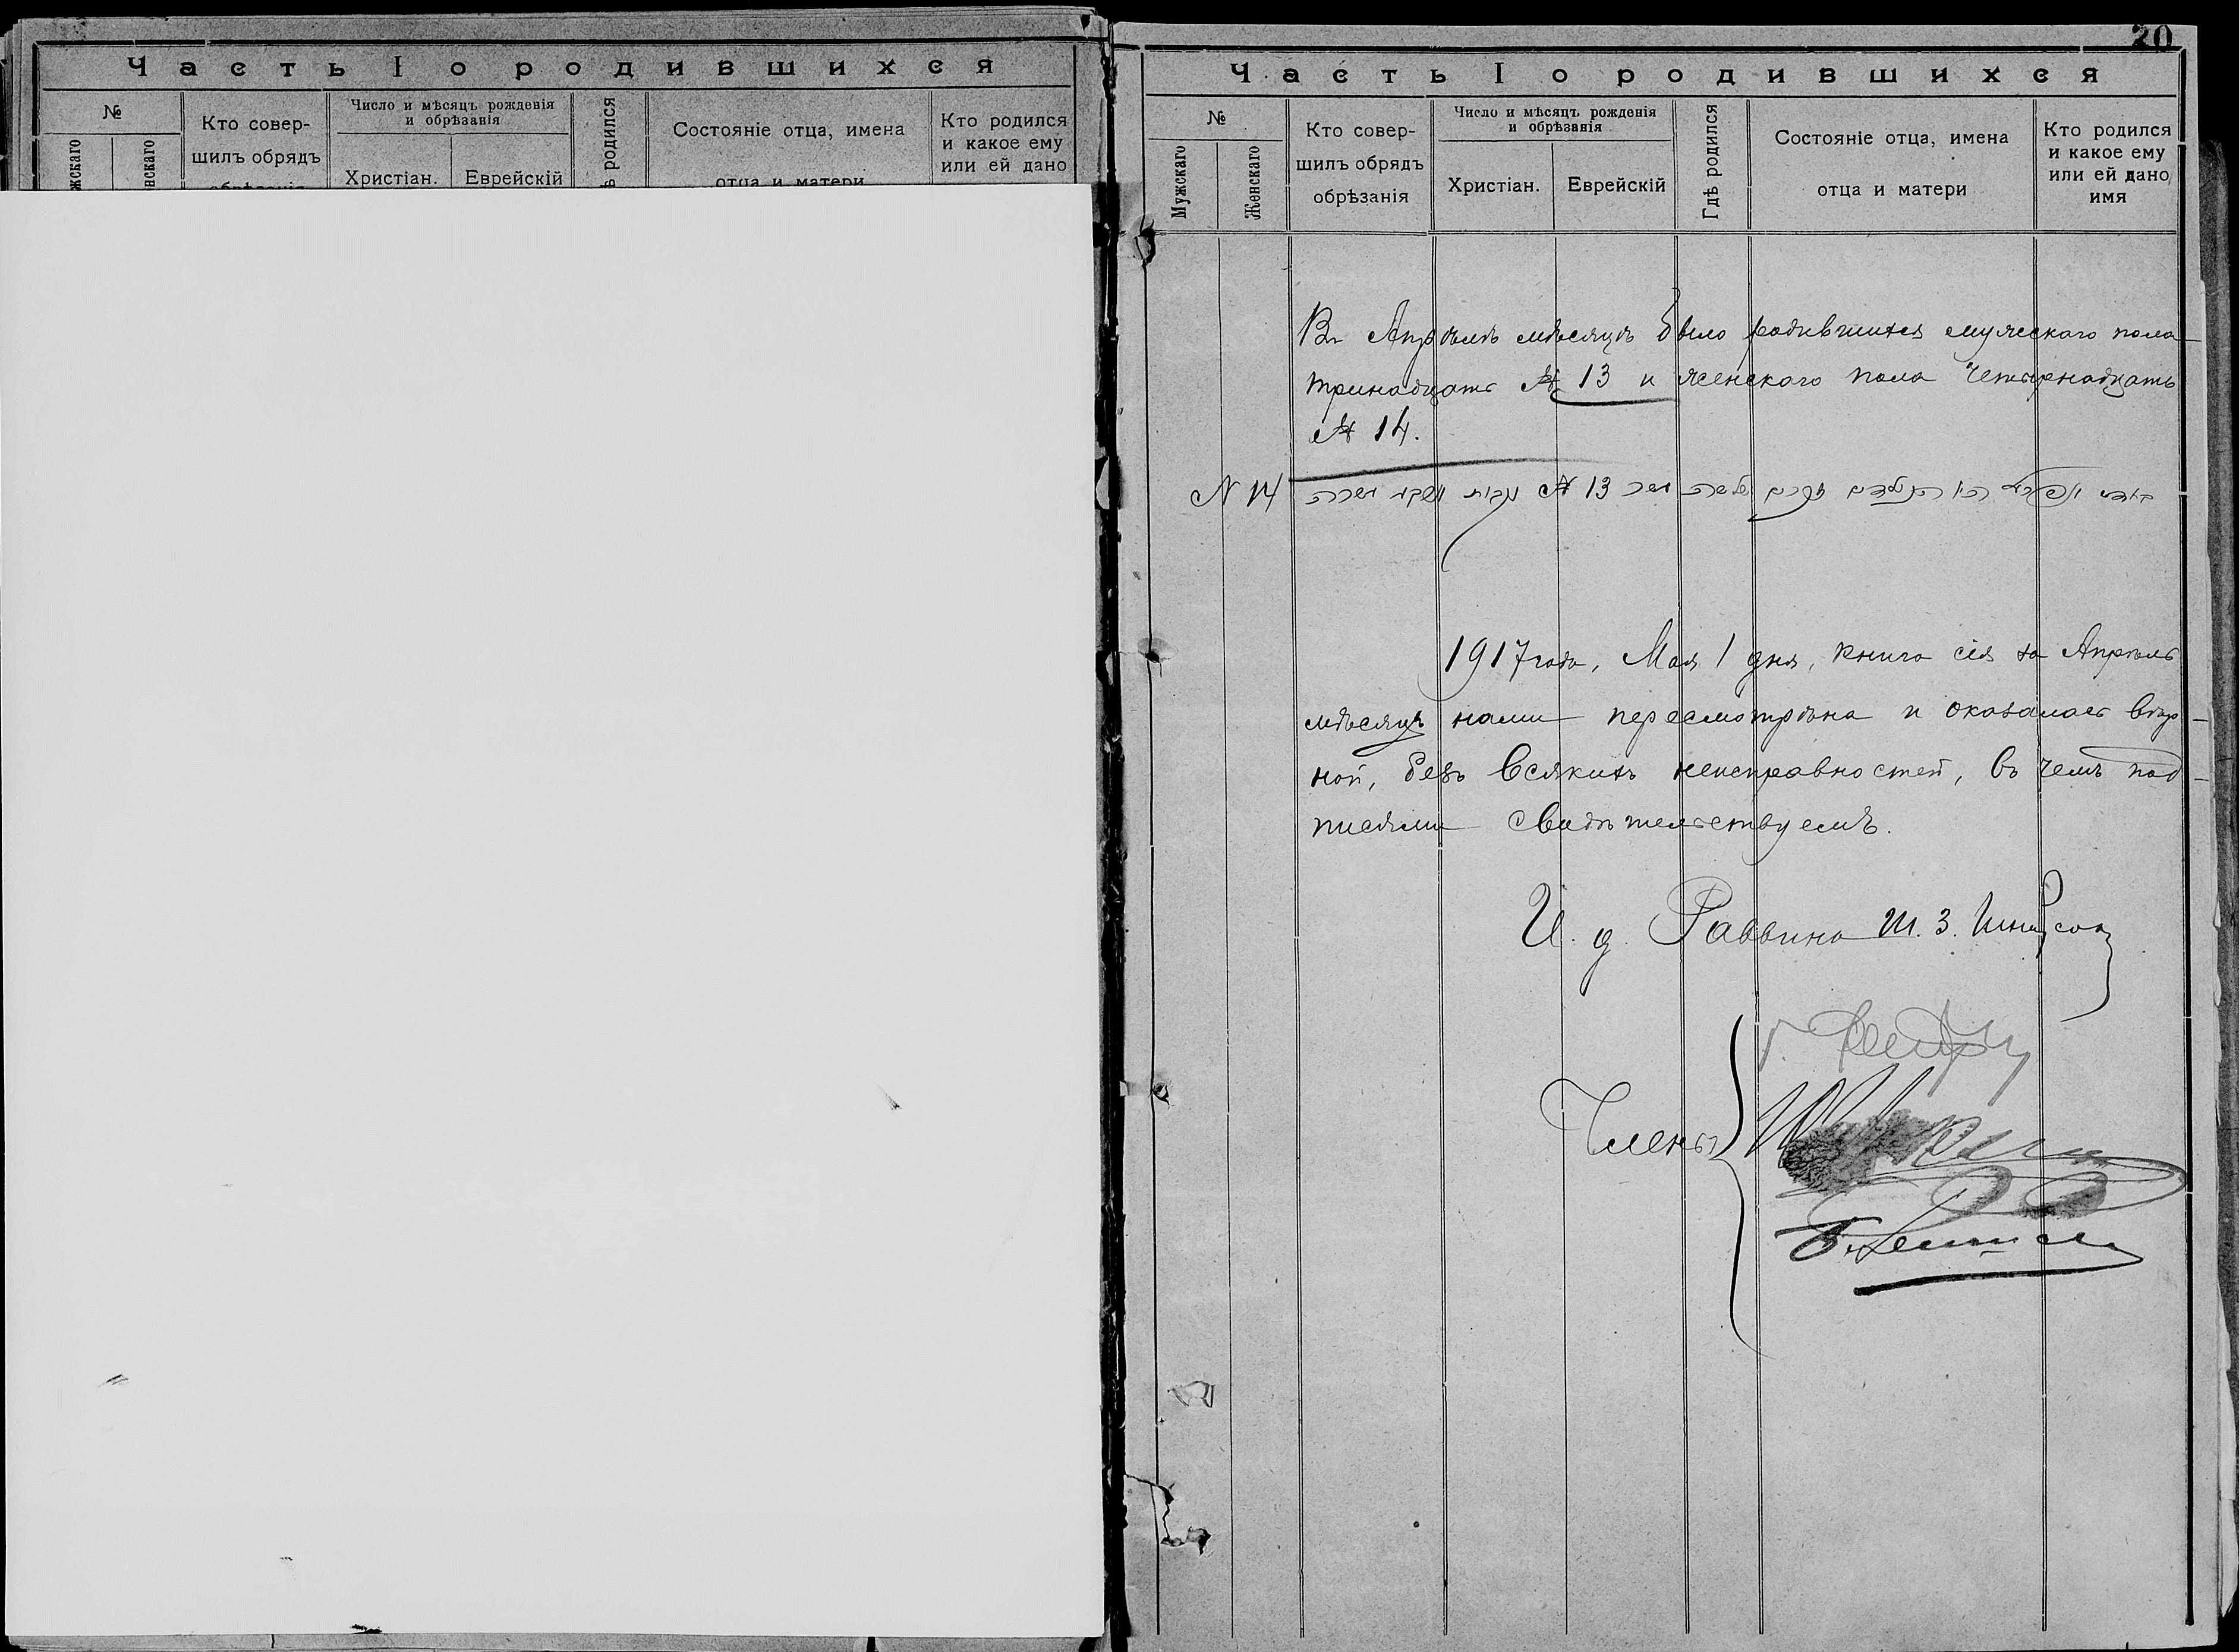 Часть I о родившихся
№
Кто совер-
шилъ обрядъ
Число и мѣсяцъ рожденія
и обрѣзанія
Христіан.
Еврейскій
родился
Состояніе отца, имена
отца и матери
Кто родился
и какое ему
или ей дано
20
Часть I о родившихся
№
Мужскаго
Женскаго
Кто совер-
шилъ обрядъ
обрѣзанія
Число и мѣсяцъ рожденія
и обрѣзанія
Христіан.
Еврейскій
Гдѣ родился
Состояніе отца, имена
отца и матери
Кто родился
и какое ему
или ей дано
имя
Въ Апрѣлѣ мѣсяцѣ было родившихся мужескаго пола
тринадцать № 13 и женскаго пола четырнадцать
№ 14.
זכרים שלשה עשר № 13 נקבות ארבע עשרה № 14
1917 года, Мая 1 дня, книга сія за Апрѣль
мѣсяцъ нами пересмотрѣна и оказалась вѣр-
ной, безъ всякихъ неисправностей, въ чемъ под-
писями свидѣтельствуемъ.
И. д. Раввина Ш. З.
Члены